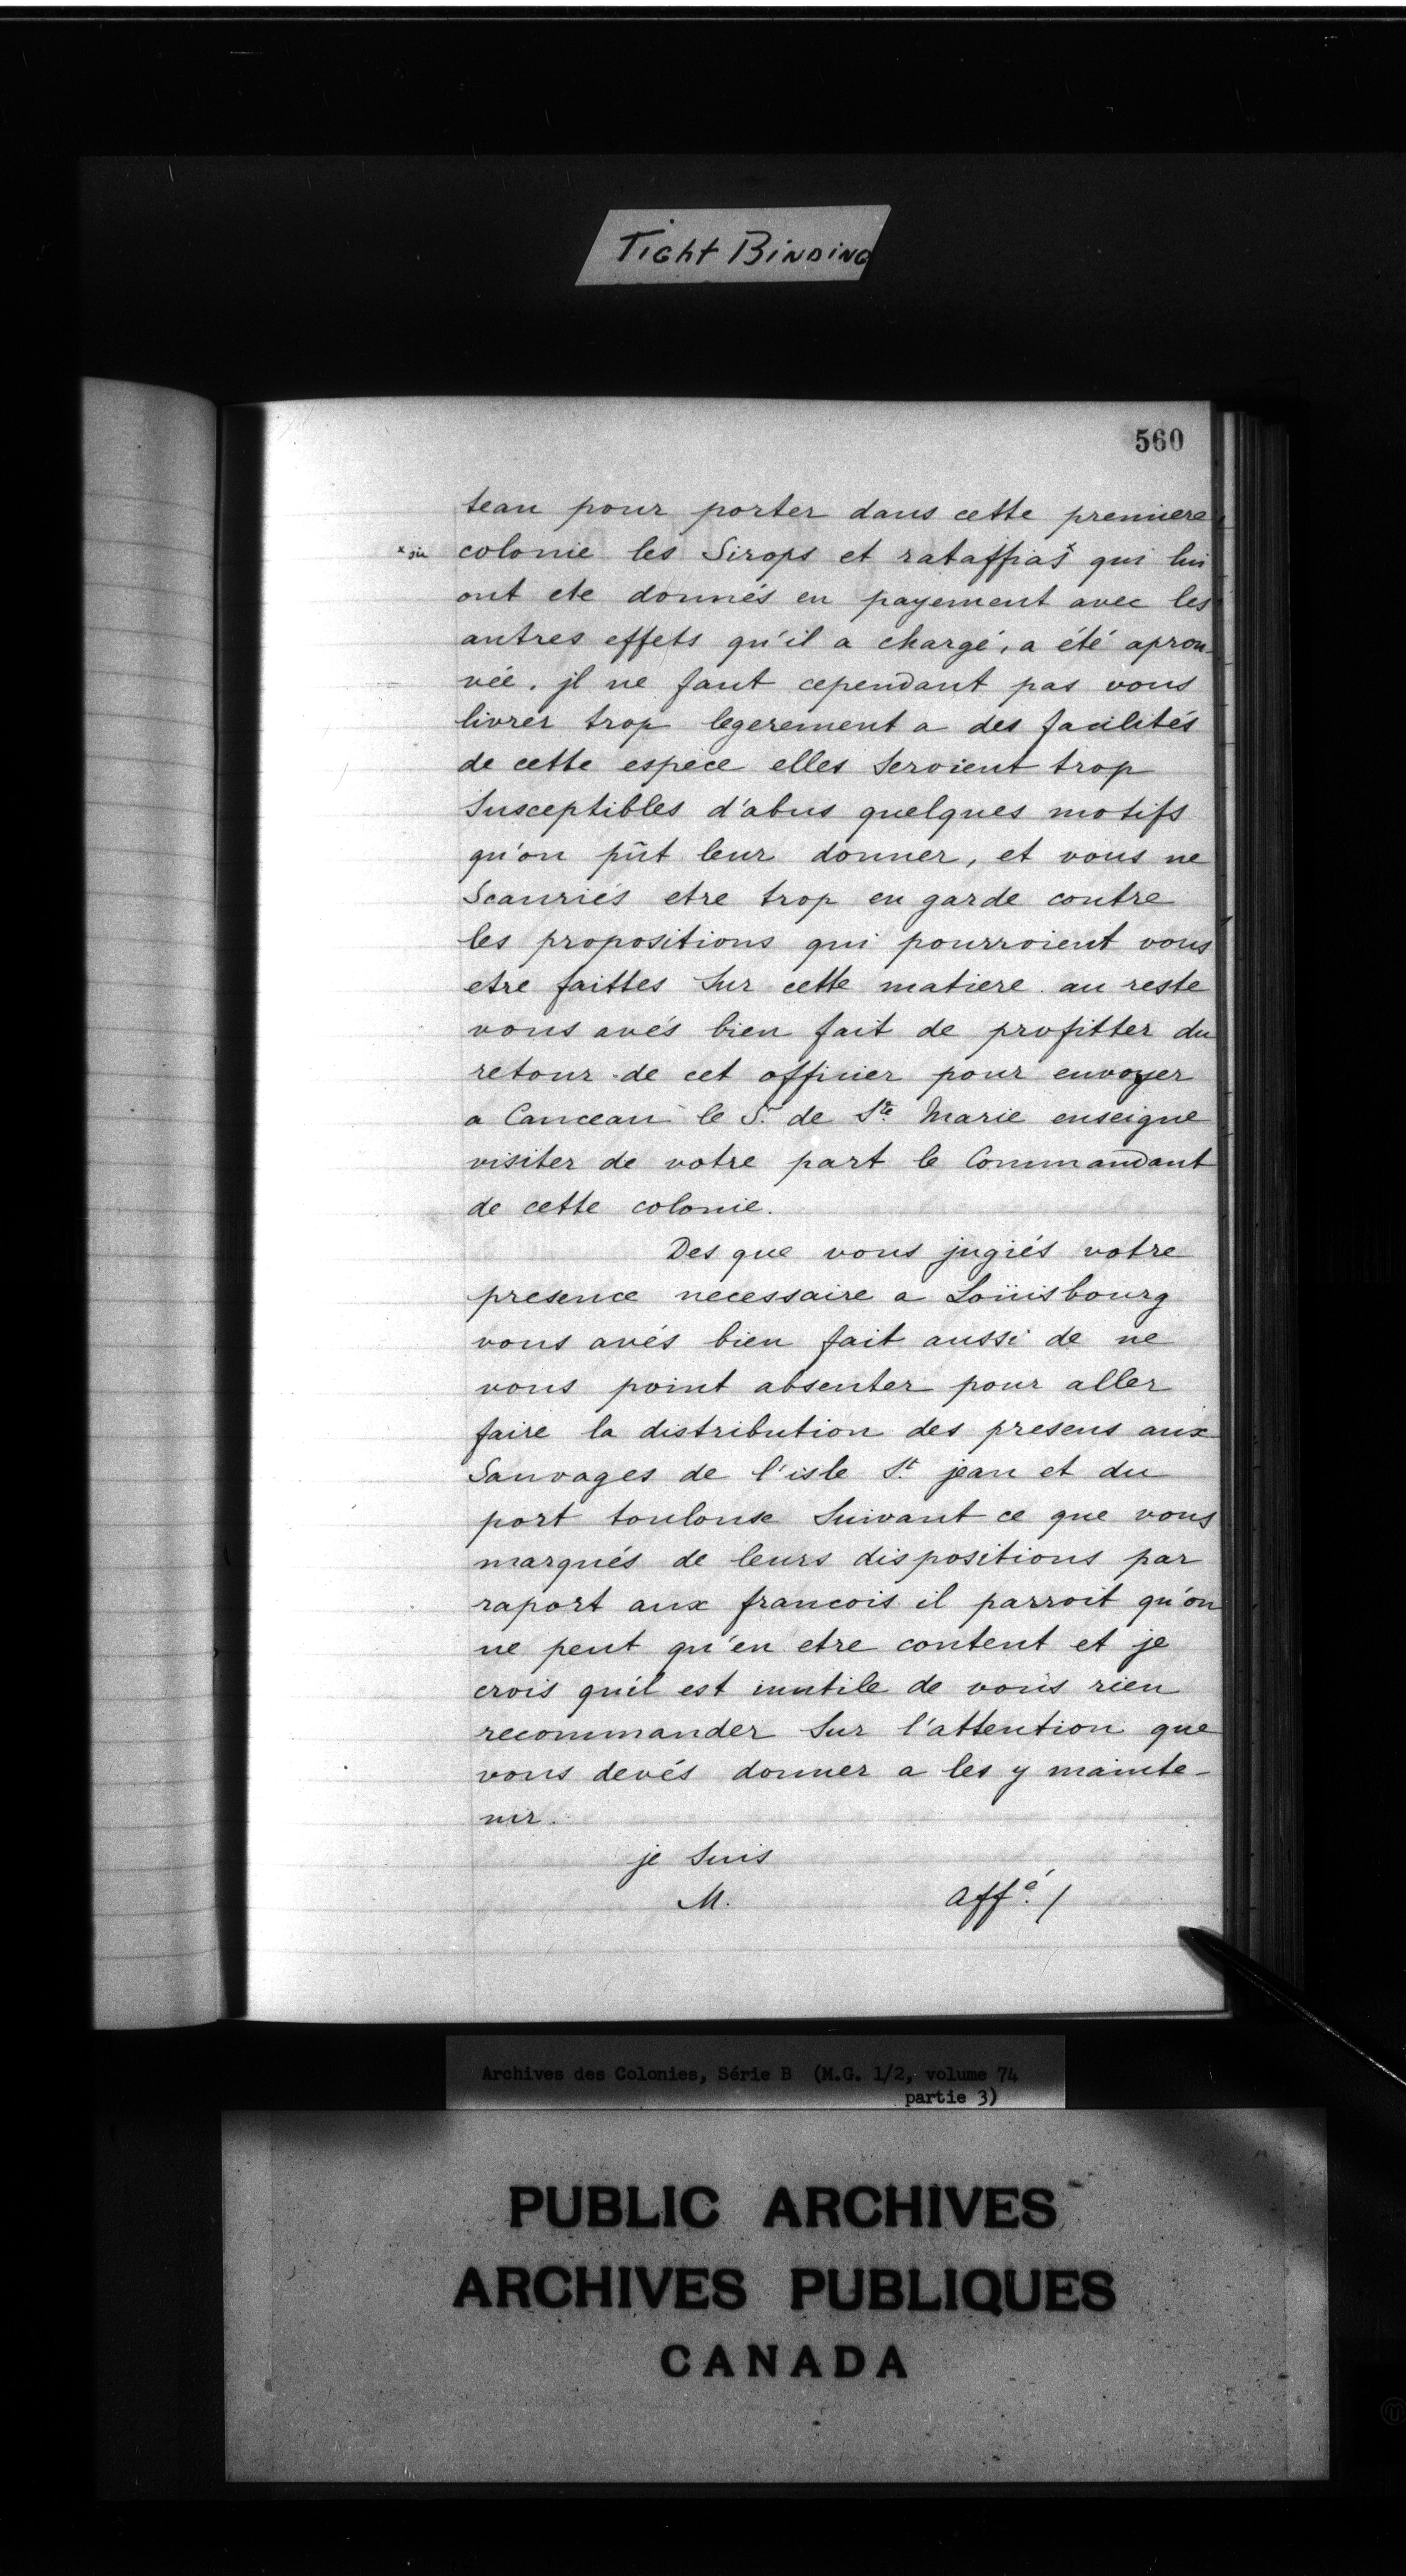 Tight Binding
560
teau pour porter dans cette premiere
* sic colonie les Sirops et rataffias* qui lui
ont ete donnés en payement avec les
autres effets qu'il a chargé, a été aprou-
vée. jl ne faut cependant pas vous
livrer trop legerement a des facilités
de cette espece elles Seroient trop
Susceptibles d'abus quelques motifs
qu'on pût leur donner, et vous ne
Scauriés etre trop en garde contre
les propositions qui pourroient vous
etre faittes Sur cette matiere. au reste
vous avés bien fait de profitter du
retour de cet officier pour envoyer
a Canceau le S. de Ste. Marie enseigne
visiter de votre part le Commandant
de cette colonie.
Des que vous jugiés votre
presence necessaire a Loüisbourg
vous avés bien fait aussi de ne
vous point absenter pour aller
faire la distribution des presens aux
Sauvages de l'isle St. jean et du
port toulouse Suivant ce que vous
marqués de leurs dispositions par
raport aux francois il parroit qu'on
ne peut qu'en etre content et je
crois qu'il est inutile de vous rien
recommander Sur l'attention que
vous devés donner a les y mainte-
nir.
je Suis
M. affé. /
Archives des Colonies, Série B (M.G. 1/2, volume 74
partie 3)
PUBLIC ARCHIVES
ARCHIVES PUBLIQUES
CANADA